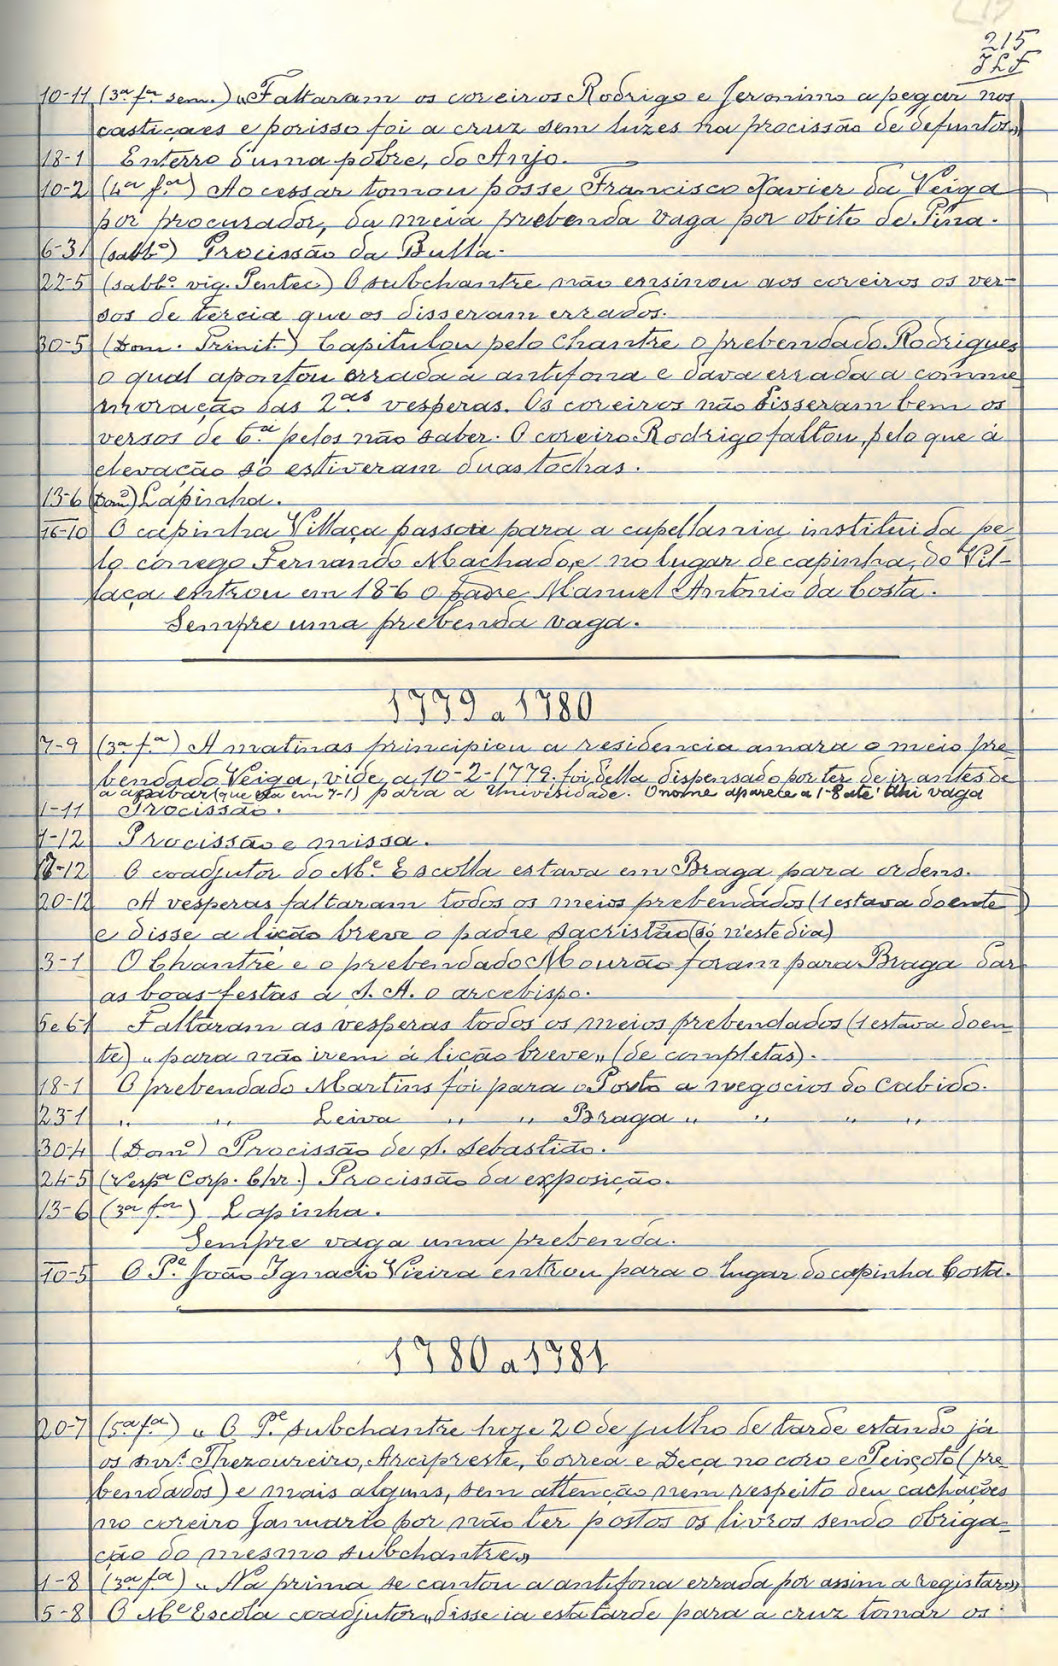 215
10-11 (3ª fª sem.) "Faltaram os coreiros Rodrigo e Jeronimo a pegar nos
castiçaes e porisso foi a cruz sem luzes na procissão de defuntos,,
18-1 Enterro d'uma pobre, do Anjo.
10-2 (4ª fª) Ao cessar tomou posse Francisco Xavier da Veiga
por procurador, da meia prebenda vaga por obito de Pina.
6-3 (sabbº) Procissão da Bulla.
22-5 (sabbº vig. Pentec.) O subchantre não ensinou aos coreiros os ver-
sos de tercia que os disseram errados.
30-5 (Dom. Trinit.) Capitulou pelo Chantre o prebendado Rodrigues
o qual apontou errada a antifona e dava errada a comme
moração das 2as vesperas. Os coreiros não disseram bem os
versos de 6ª pelos não saber. O coreiro Rodrigo faltou, pelo que á
elevação só estiveram duas tochas.
13-6 (Domº) Lapinha.
16-10 O capinha Villaça passou para a capellania instituida pe-
lo conego Fernando Machado, e no lugar de capinha, do Vil-
laça entrou em 18-6 o padre Manuel Antonio da Costa.
Sempre uma prebenda vaga.
1779 a 1780
7-9 (3ª fª) A matinas principiou a residencia amara o meio pre-
bendado Veiga, vide, a 10-2-1779. foi della dispensado por ter de ir antes de
a acabar (que era em 7-1) para a Universidade. O nome aparece a 1-8 até ahi vaga
1-11 Procissão.
1-12 Procissão e missa.
17-12 O coadjutor do Mᵉ Escolla estava em Braga para ordens.
20-12 A vesperas faltaram todos os meios prebendados (1 estava doente)
e disse a lição breve o padre sacristão (só n'este dia)
3-1 O Chantre e o prebendado Mourão foram para Braga dar
as boas-festas a S. A. o arcebispo.
5 e 6-1 Faltaram as vesperas todos os meios prebendados (1 estava doen-
te) "para não irem á lição breve,, (de completas).
18-1 O prebendado Martins foi para o Porto a negocios do Cabido.
23-1 " " Leiva " " Braga " " " "
30-4 (Domº) Procissão de S. Sebastião.
24-5 (Vespª Corp. Chr.) Procissão da exposição.
13-6 (3ª fª) Lapinha.
Sempre vaga uma prebenda.
10-5 O Pᵉ João Ignacio Vieira entrou para o lugar do capinha Costa.
1780 a 1781
20-7 (5ª fª) "O Pᵉ subchantre hoje 20 de julho de tarde estando já
os snrs Thezoureiro, Arcipreste, Correa e Deça no coro e Peixoto (pre-
bendados) e mais alguns, sem attenção nem respeito deu cachações
no coreiro Januario por não ter postos os livros sendo obriga-
ção do mesmo subchantre,,
1-8 (3ª fª) "Na prima se cantou a antifona errada por assim a registar,,
5-8 O Mᵉ Escola coadjutor "disse ia esta tarde para a cruz tomar os